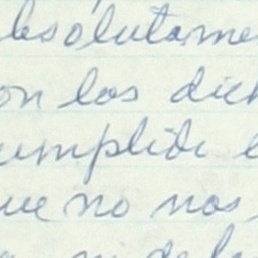 bsolutame
on los dich
cumplidi e
que no nos